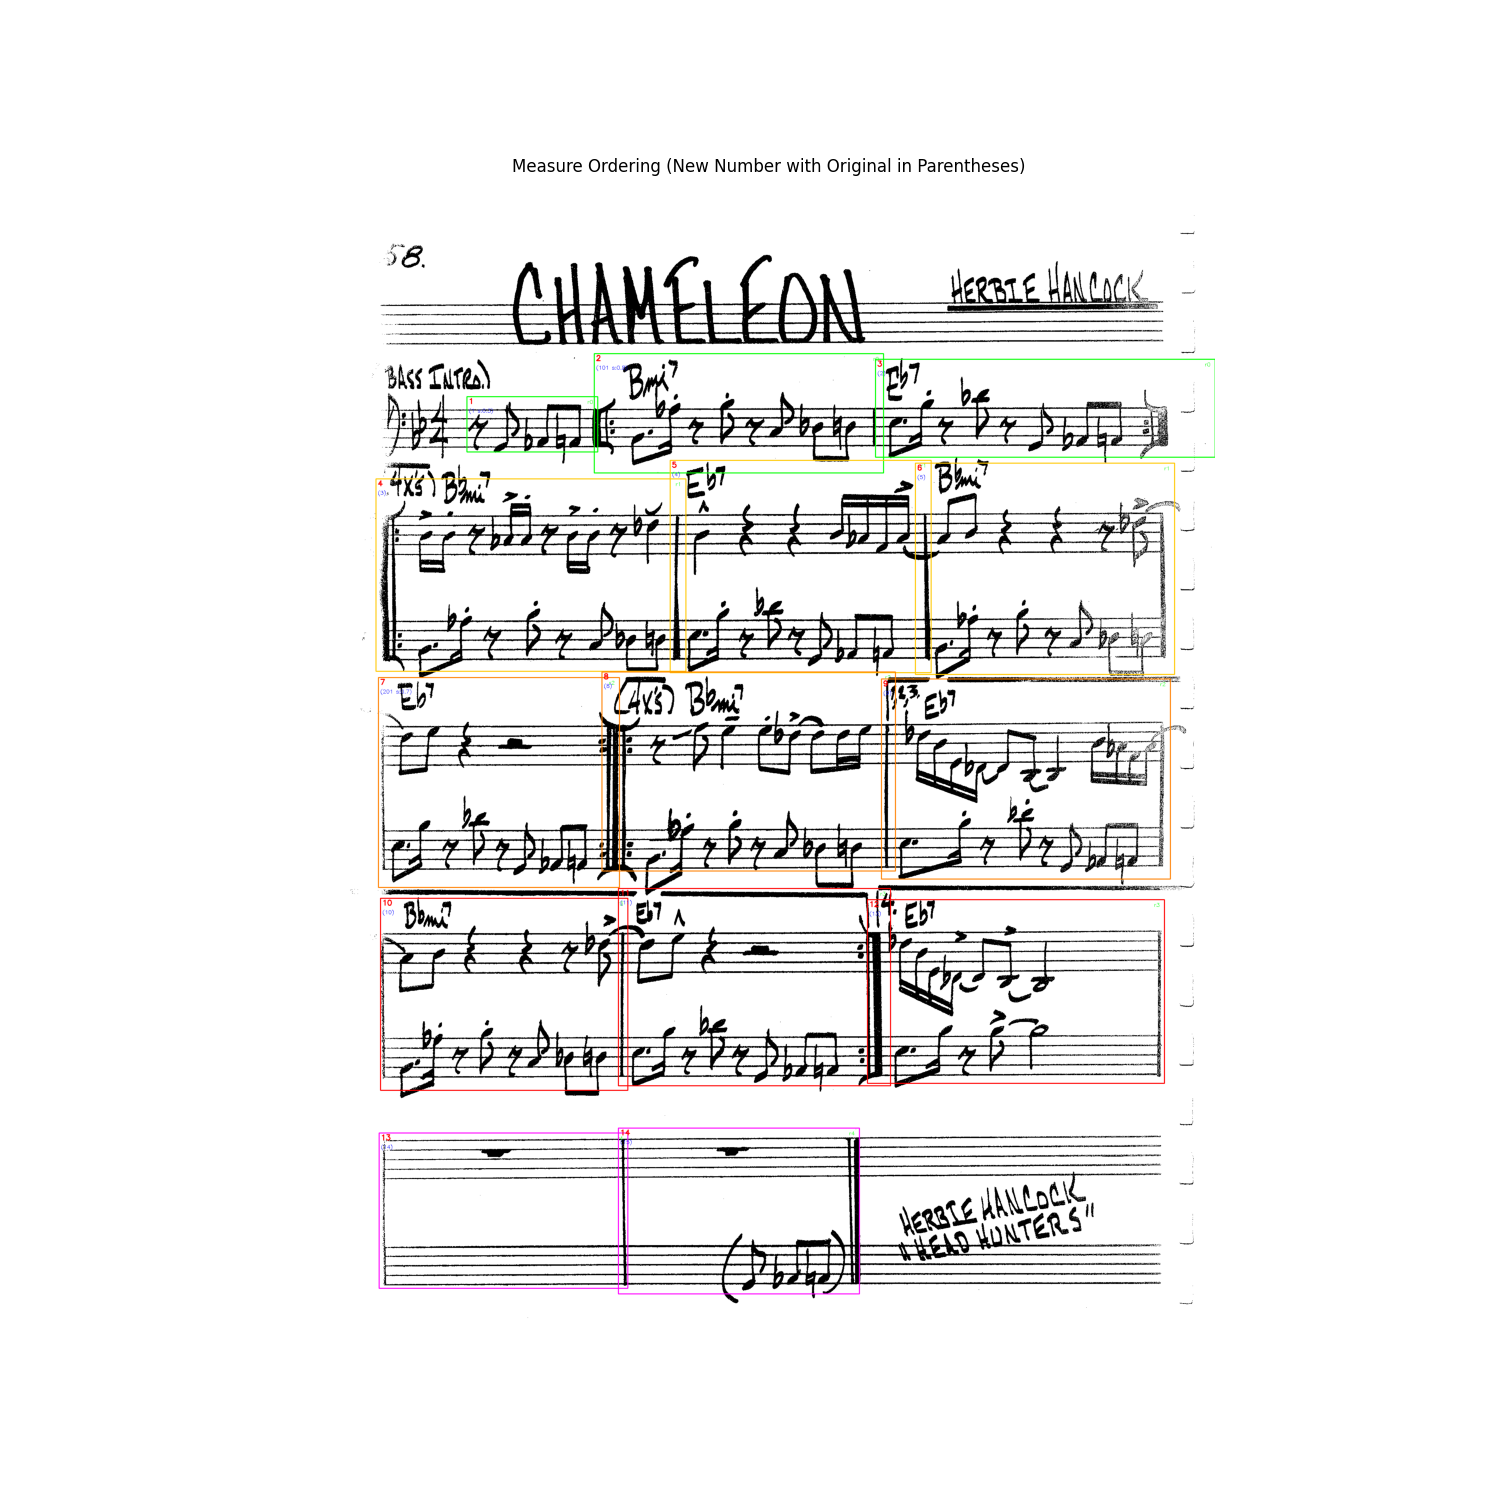 Measure Ordering (New Number with Original in Parentheses)
58.
CHAMELEON
HERBIE HANCOCK
BASS INTRO.)
1
2
(101
Bmi7
3
Eb7
4
(3)
4X's) Bbmi7
5
Eb7
6
(5)
Bbmi7
7
(201
Eb7
8
(8)
(4X's) Bbmi7
9
1,2,3.
Eb7
10
(10)
Bbmi7
(11)
Eb7
12
4.
Eb7
13
14
HERBIE HANCOCK
"HEAD HUNTERS"